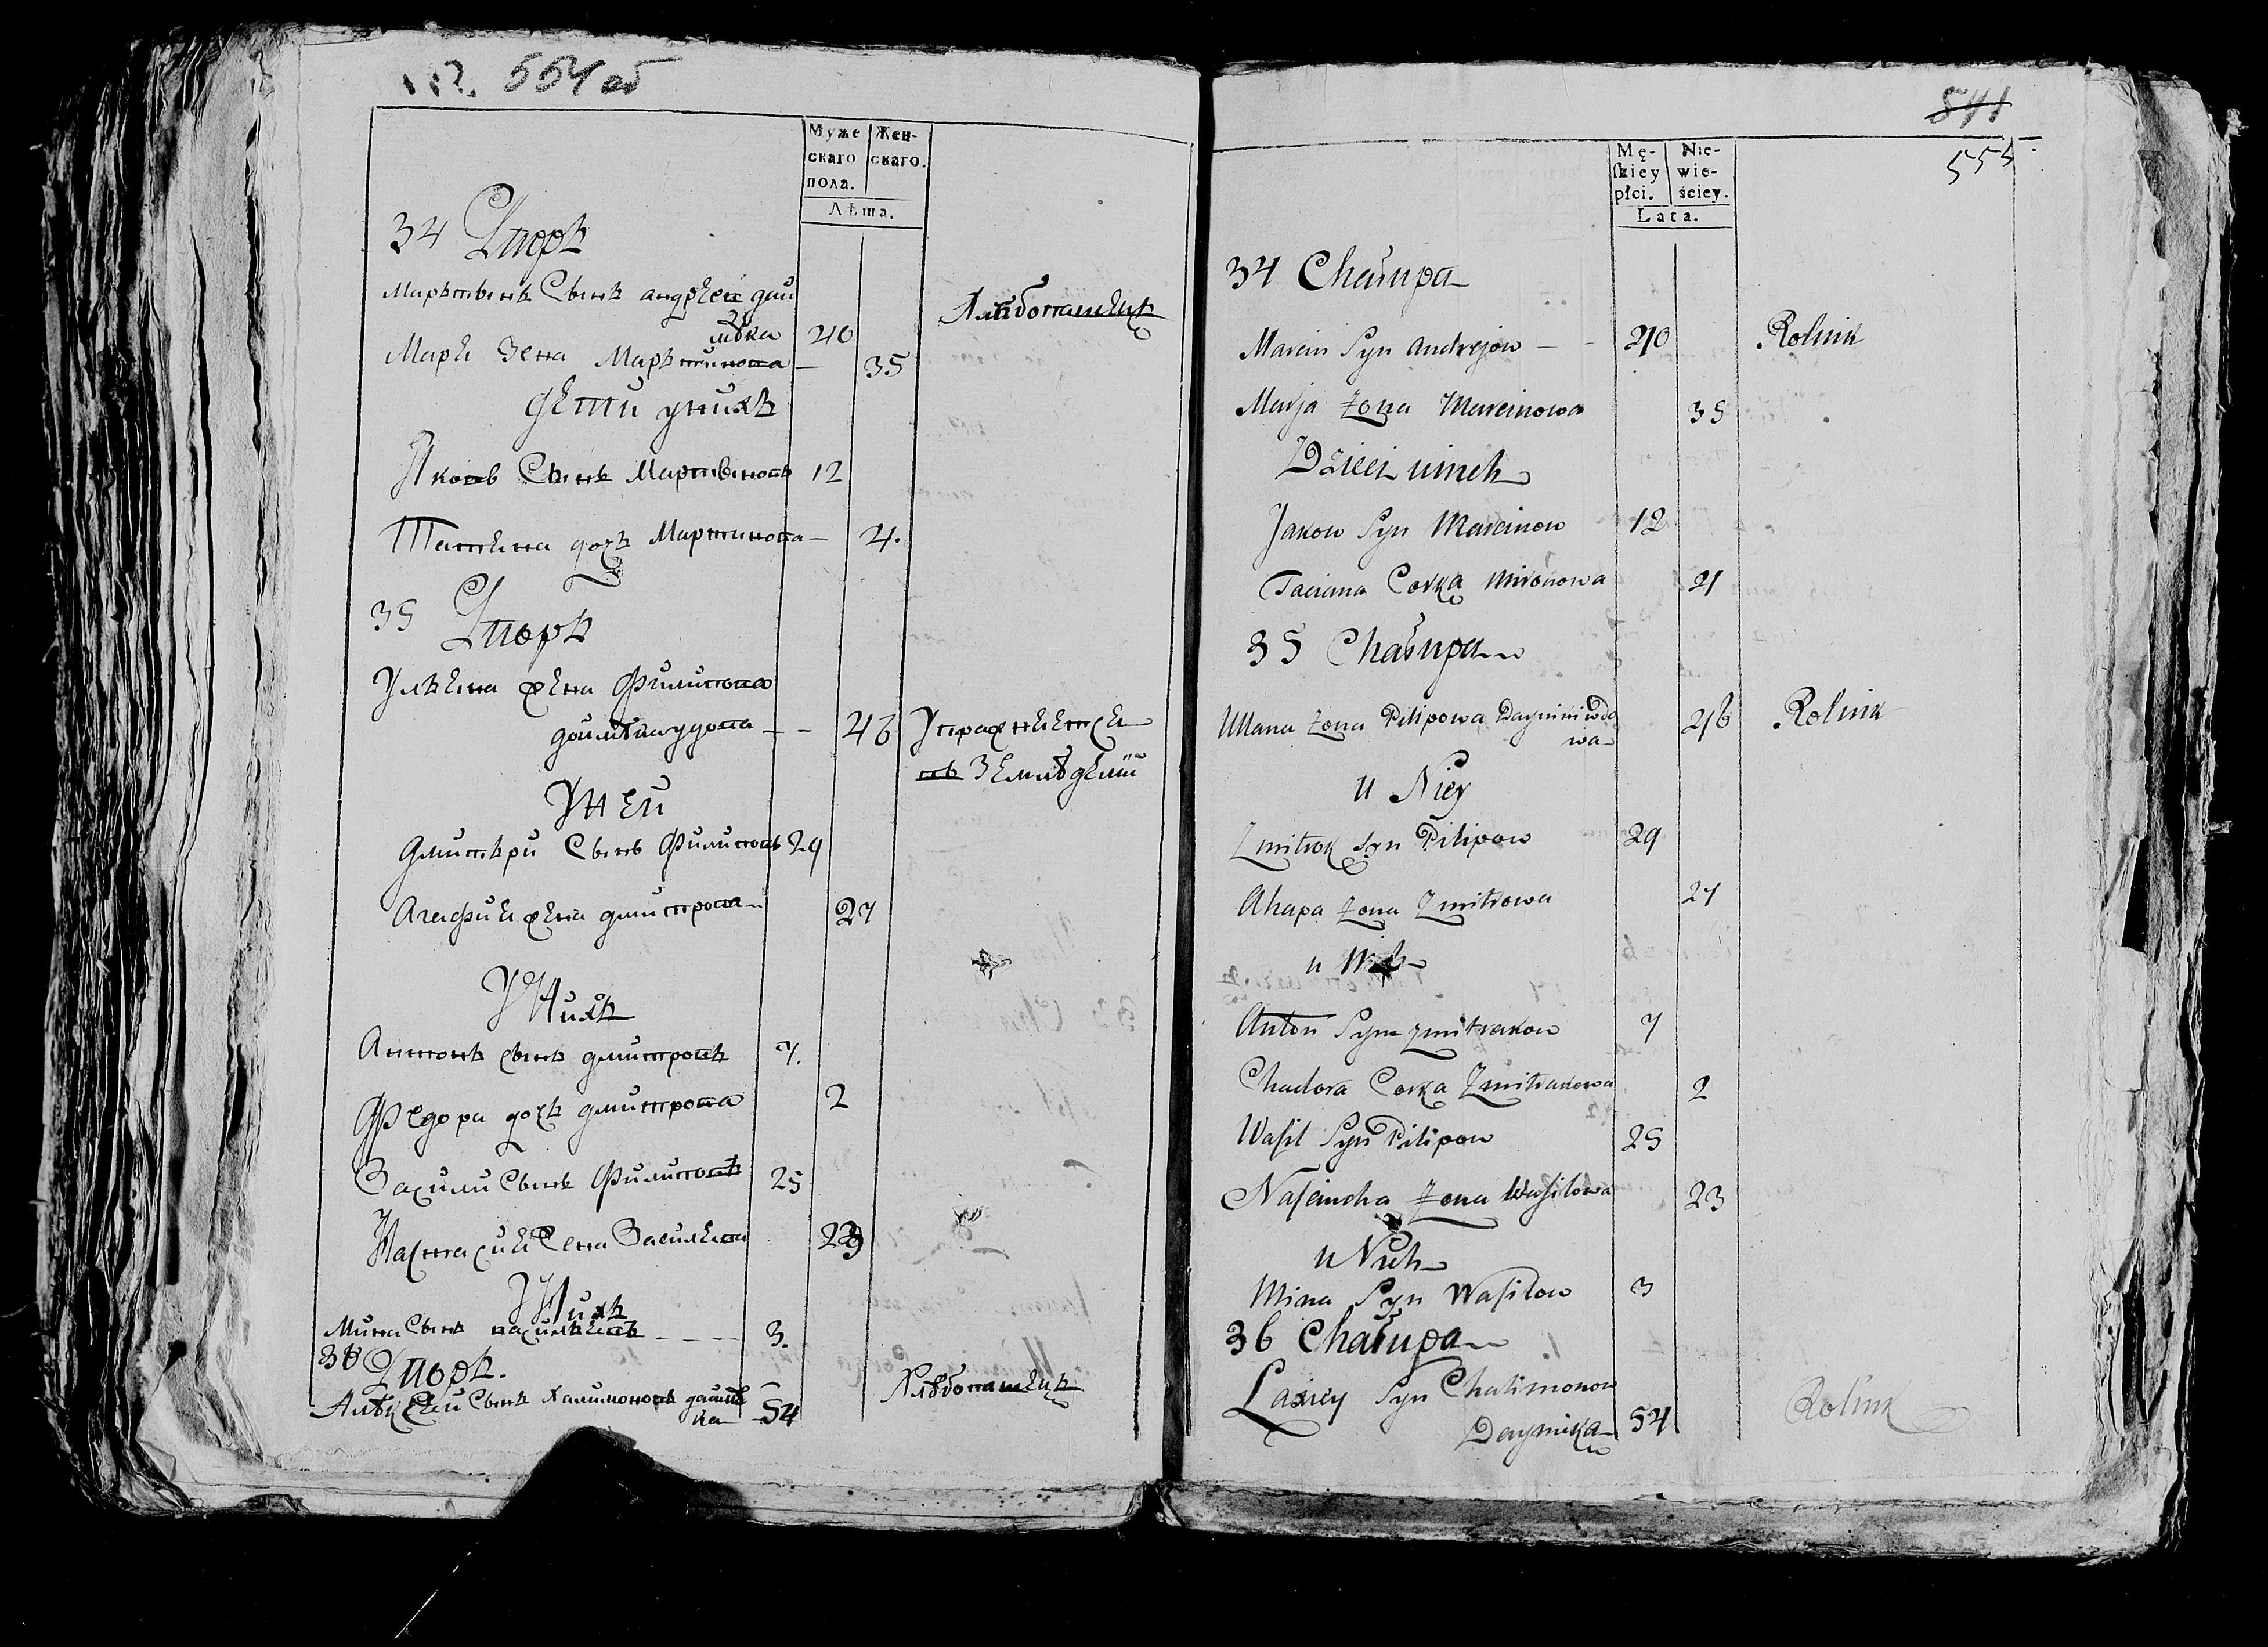 554 об
Муже
скаго
пола.
Жен-
скаго.
Лѣта.
34 Дворъ
Мартинъ Сынъ андреея дай
нѣка 40
Хлѣбопашецъ
Марья Зена Мартинова — 35
дети унихъ
Яковъ Сынъ Мартиновъ 12
Татяна дочъ Мартинова — 4.
35 Дворъ
Улъяна жена Филипова
46 Упражняется
въ Земледелiи
У Ней
Дмитъри Сынъ Филиповъ 29
Агафия жена дмитрова 27
У Нихъ
Антонъ сынъ дмитровъ 7.
Федора дочъ дмитрова 2
Василий Сынъ Филиповъ 25
Настасия Жена Василева 23
У Нихъ
Мина Сынъ васильевъ - - - - 3.
36 Дворъ.
Алѣксей Сынъ Халимоновъ дайнѣ
ка 54
Хлѣбопашецъ
541
555
Mę-
ſkiey
płci.
Nie-
wie-
ściey.
Lata.
34 Chałupa
Marcin Syn Andrejow — - 40 Rolnik
Marja Zona Marcinowa 35
Dzieci unich
Jakow Syn Marcinow 12
Taciana Corka Mironowa 4
35 Chałupa
Ullana Zona Pilipowa Daynini wdo
wa 46 Rolnik
u Niey
Zmitrok Syn Pilipow 29
Ahapa Zona Zmitrowa 27
u Nich
Anton Syn Zmitrakow 7
Chadora Corka Zmitrakowa 2
Waſil Syn Pilipow 25
Naſcincha Zona Waſilowa 23
u Nich
Mina Syn Waſilow 3
36 Chałupa
Laxiey Syn Chalimonow
Daynika 54 Rolnik